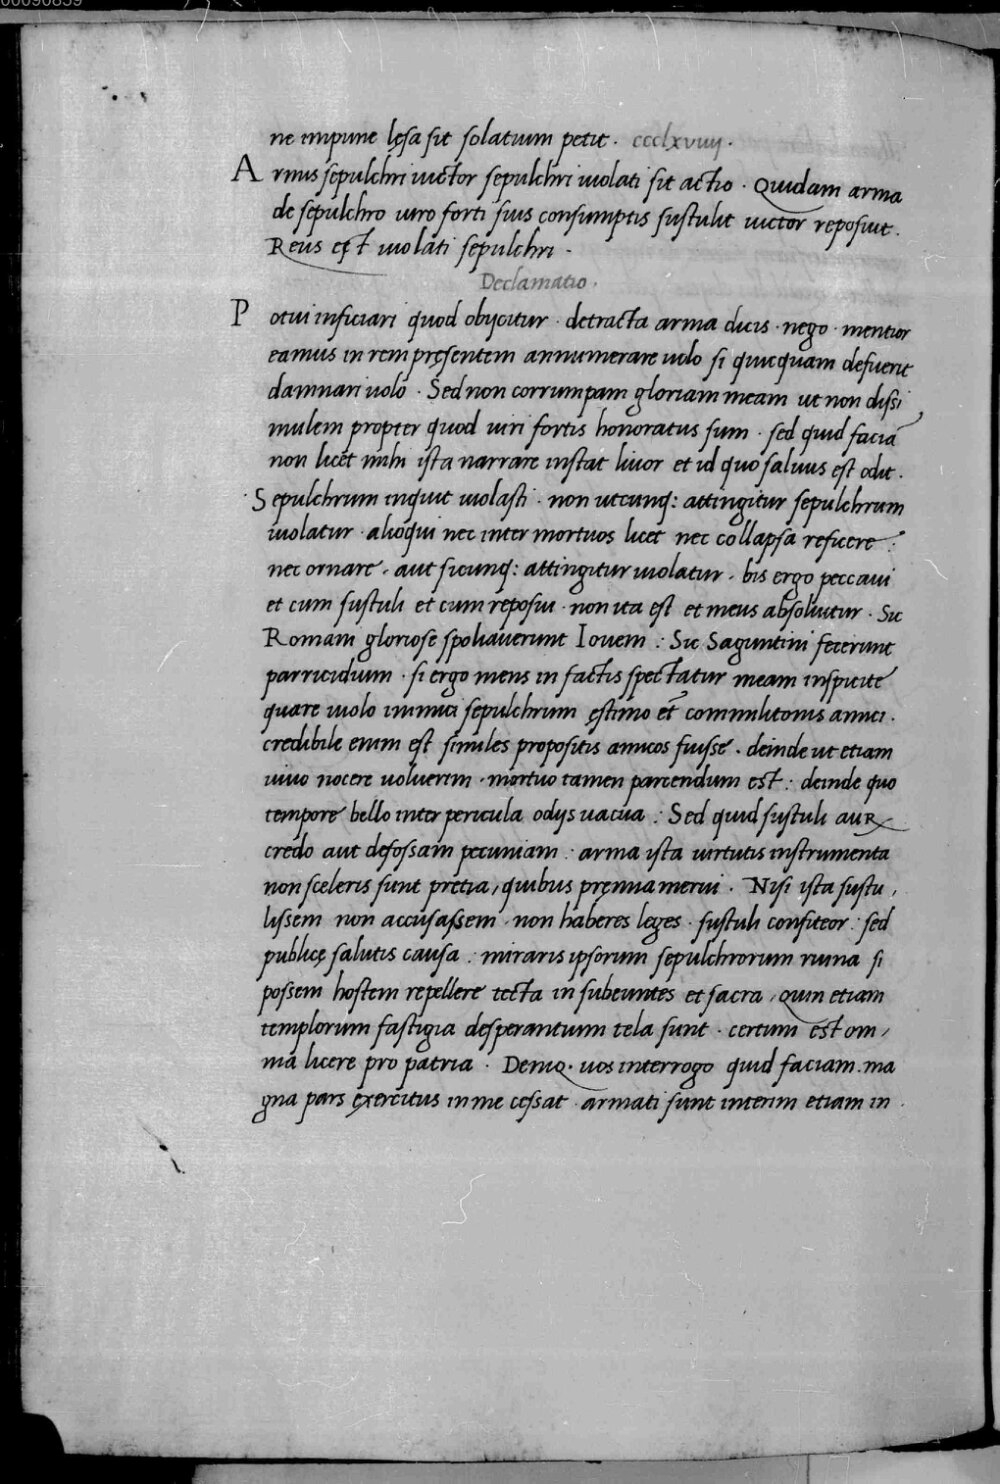 00090859
ne impune lęsa sit solatium petit . ccclxviiij .
Armis sepulchri victor sepulchri violati sit actio . Quidam arma
de sepulchro viro forti suis consumptis sustulit victor reposuit .
Reus est violati sepulchri .
Declamatio .
Potui inficiari quod obijcitur . detracta arma ducis . nego . mentior
eamus in rem pręsentem annumerare volo si quicquam defuerit
damnari volo . Sed non corrumpam gloriam meam ut non dissi
mulem propter quod viri fortis honoratus sum . sed quid faciā
non licet mihi ista narrare instat livor et id quo salvus est odit .
Sepulchrum inquit violasti . non utcunq: attingitur sepulchrum
violatur . alioqui nec inter mortuos licet nec collapsa reficere :
nec ornare . aut sicunq: attingitur violatur . bis ergo peccavi
et cum sustuli et cum reposui . non ita est et meus absolvitur . Sic
Romam gloriose spoliaverunt Iovem : Sic Saguntini fecerunt
parricidium . si ergo mens in factis spectatur meam inspicite
quare violo inimici sepulchrum ęstimo et commilitonis amici .
credibile enim est similes propositis amicos fuisse . deinde ut etiam
vivo nocere voluerim . mortuo tamen parcendum est : deinde quo
tempore bello inter pericula odijs vacua : Sed quid sustuli auꝝ
credo aut defossam pecuniam : arma ista virtutis instrumenta
non sceleris sunt pretia , quibus pręmia merui . Nisi ista sustu ,
lissem non accusassem . non haberes leges . sustuli confiteor : sed
publicę salutis causa : miraris ipsorum sepulchrorum ruina si
possem hostem repellere tecta in subeuntes et sacra , quin etiam
templorum fastigia desperantium tela sunt . certum est om ,
nia licere pro patria . Deniq. vos interrogo quid faciam . ma
gna pars exercitus in me cessat . armati sunt interim etiam in .